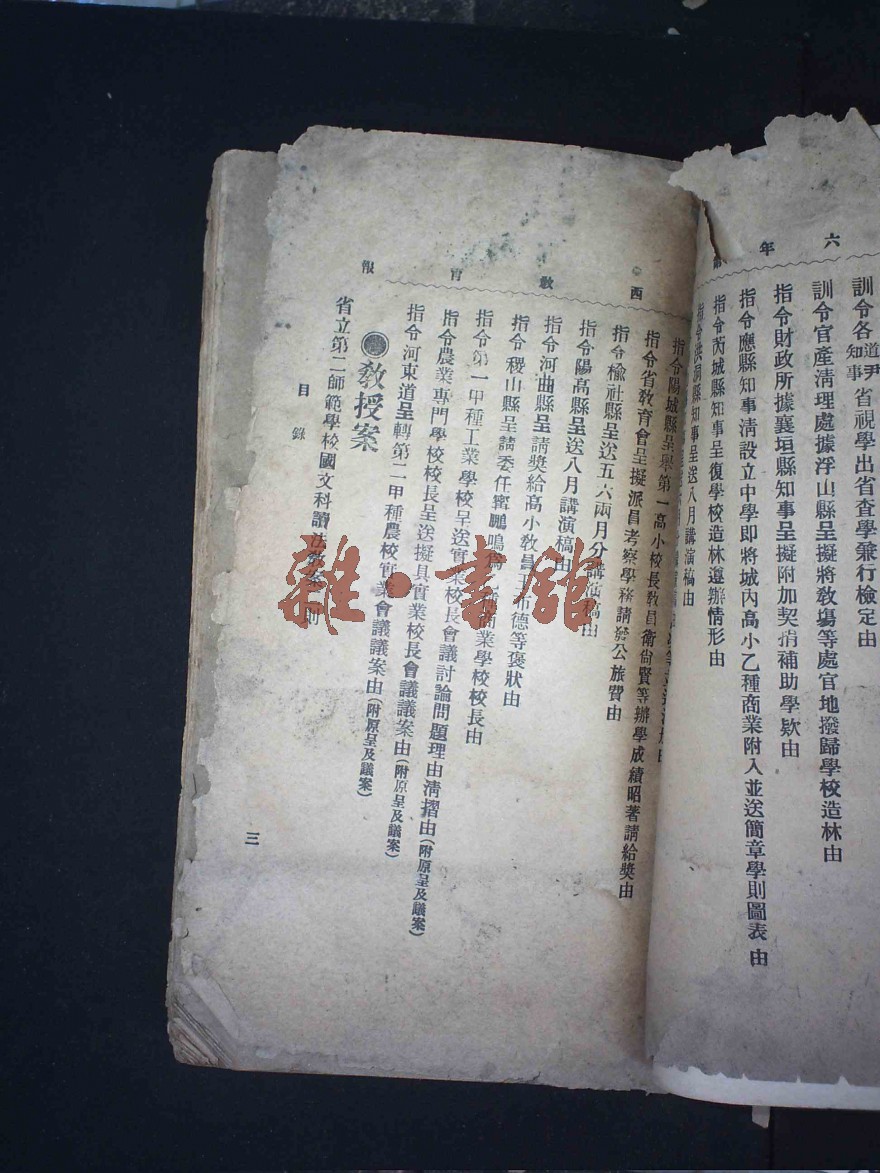 六年
訓令各道尹知事省視學出省查學兼行檢定由
訓令官產清理處據浮山縣呈擬將教場等處官地撥歸學校造林由
指令財政所據襄垣縣知事呈擬附加契捐補助學欵由
指令應縣知事淸設立中學即將城內高小乙種商業附入並送簡章學則圖表由
指令芮城縣知事呈復學校造林遵辦情形由
指令洪洞縣知事呈送八月講演稿由
西教育報
指令陽城縣呈舉第一高小校長敎員衛尙賢等辦學成績昭著請給獎由
指令省敎育會呈擬派員考察學務請發公旅費由
指令楡社縣呈送五六兩月分講演稿由
指令陽高縣呈送八月講演稿由
指令河曲縣呈請獎給高小敎員王布德等褒狀由
指令稷山縣呈請委任寗鵬鳴爲商業學校校長由
指令第一甲種工業學校呈送實業校長會議討論問題理由淸摺由(附原呈及議案)
指令農業專門學校校長呈送擬具實業校長會議議案由(附原呈及議案)
指令河東道呈轉第二甲種農校實業會議議案由(附原呈及議案)
敎授案
省立第二師範學校國文科讀法敎案一則
目錄
三
雜·書館